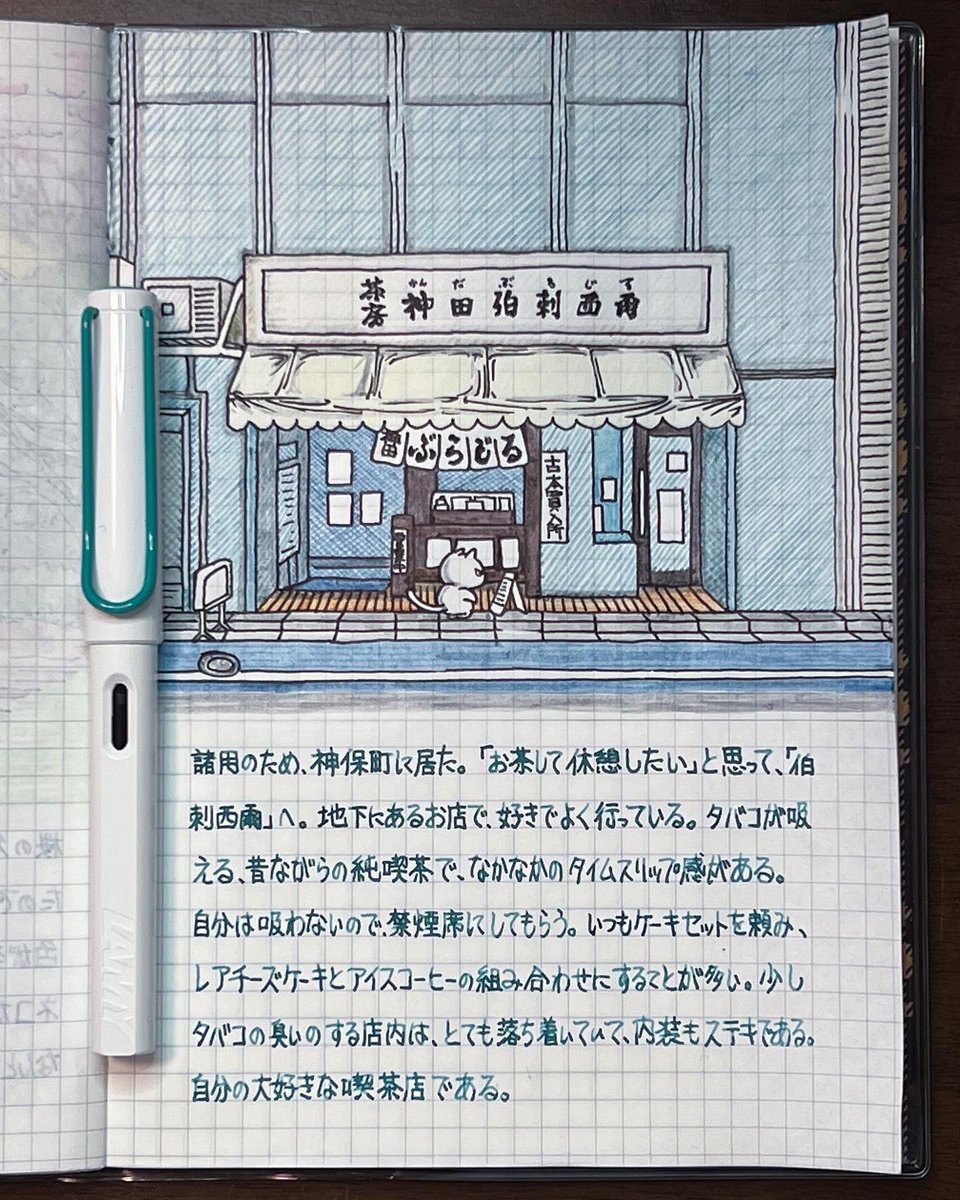 かんだぶらじる
茶房 神田伯刺西爾
神田ぶらじる
古本買入所
営業中
諸用のため、神保町に居た。「お茶して休憩したい」と思って、「伯
刺西爾」へ。地下にあるお店で、好きでよく行っている。タバコが吸
える、昔ながらの純喫茶で、なかなかのタイムスリップ感がある。
自分は吸わないので、禁煙席にしてもらう。いつもケーキセットを頼み、
レアチーズケーキとアイスコーヒーの組み合わせにすることが多い。少し
タバコの臭いのする店内は、とても落ち着いていて、内装もステキである。
自分の大好きな喫茶店である。
LAMY